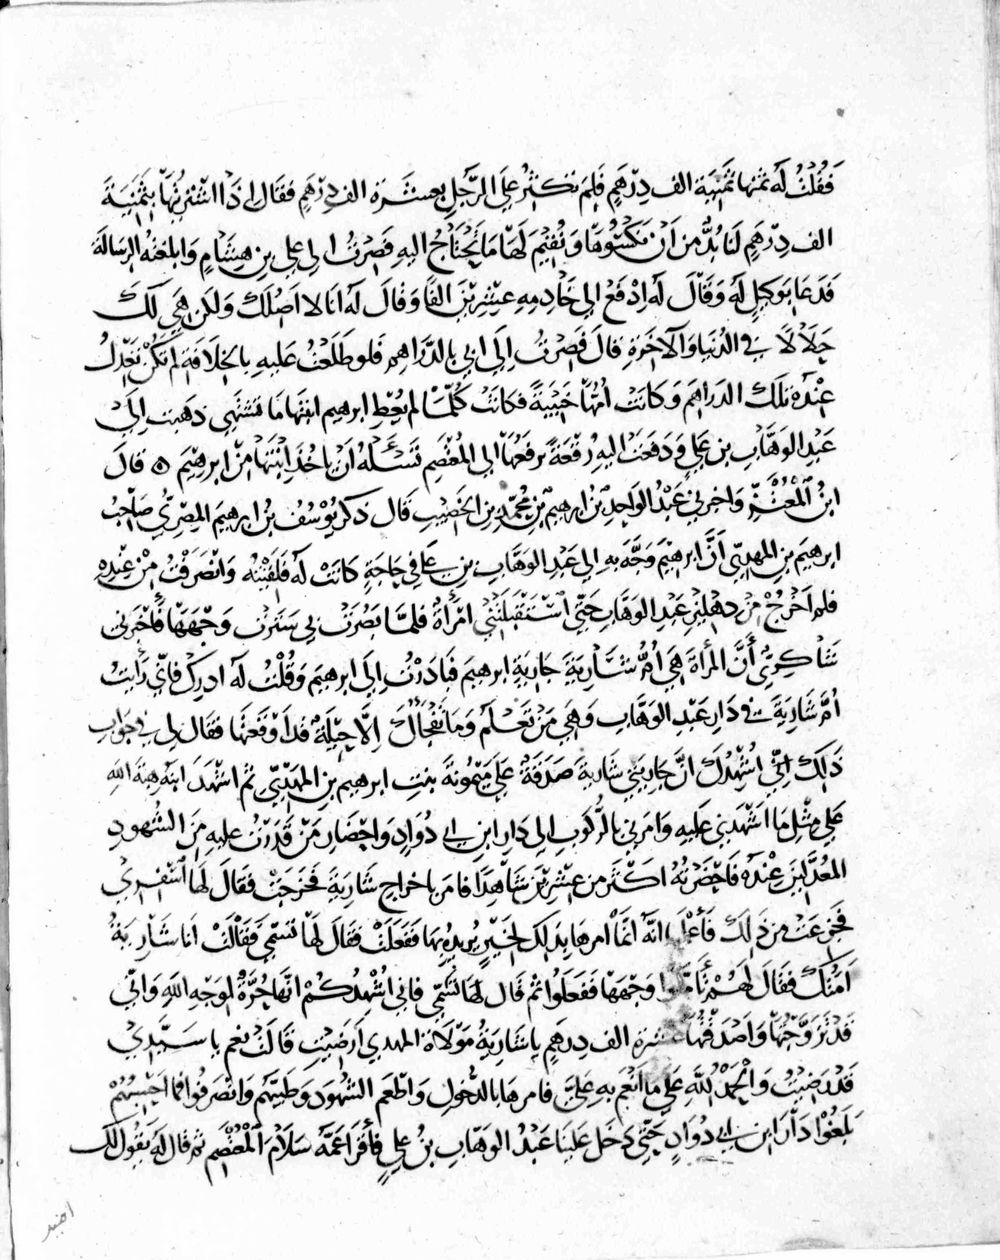 فقلت له ثمنها ثمنية الف درهم فلم تكثر على الرجل بعشرة الف درهم فقال لى اذا اشتريتها بثمنية
الف درهم لنا بد من ان نكسوها ونقيم لها ما يحتاج اليه فصرت الى على بن هشام وابلغته الرسالة
فدعا بوكيل له وقال له ادفع الى خادمه عشرين الفا وقال له انا لا اصلك ولكن هى لك
حلالا فى الدنيا والاخرة قال فصرت الى ابى بالدراهم فلو طلعت عليه بالخلافة لم تكن تعدل
عنده تلك الدراهم وكانت امها خبيثة فكانت كلما لم يعط ابرهيم ابنتها ما تشتهى ذهبت الى
عبد الوهاب بن على ودفعت اليه رقعة يرفعها الى المعتصم تسئله ان ياخذ ابنتها من ابرهيم ه قال
ابن المعتز واخبرنى عبد الواحد بن ابرهيم بن محمد بن الخصيب قال ذكر يوسف بن ابرهيم المصرى صاحب
ابرهيم بن المهدى أن ابرهيم وجه به الى عبد الوهاب بن على فى حاجة كانت له فلقيته وانصرفت من عنده
فلم اخرج من دهليز عبد الوهاب حتى استقبلتنى امرأة فلما نصرت بى سترت وجهها فأخبرنى
شاكرى أن المرأة هى ام شارية جارية ابرهيم فبادرت الى ابرهيم وقلت له ادرك فانى رأيت
ام شارية فى دار عبد الوهاب وهى من تعلم وما يفجاك الا حيلة قد اوقعتها فقال لى فى جواب
ذلك انى اشهدك ان جاريتى شارية صدقة على ميمونة بنت ابرهيم بن المهدى ثم اشهد ابنه هبة الله
على مثل ما اشهدنى عليه وامرنى بالركوب الى دار ابن ابى دواد واحضار من قدرت عليه من الشهود
المعدلين عنده فاحضرته اكثر من عشرين شاهدا فامر باخراج شارية فخرجت فقال لها اسفرى
فجزعت من ذلك فأعلمها انه انما امرها بذلك لخير يريده بها ففعلت فقال لها تسمى فقالت انا شارية
امتك فقال لهم تأملوا وجهها ففعلوا ثم قال لها تسمى فانى اشهدكم انها حرة لوجه الله وانى
قد تزوجتها واصدقتها عشرة الف درهم يا شارية مولاة المهدى ارضيت قالت نعم يا سيدى
قد رضيت والحمد لله على ما انعم به على فامرها بالدخول واطعم الشهود وطيبهم وانصرفوا فما احسبهم
بلغوا دار ابن ابى دواد حتى دخل علينا عبد الوهاب بن على فأقرا عمه سلام المعتصم ثم قال له يقول لك